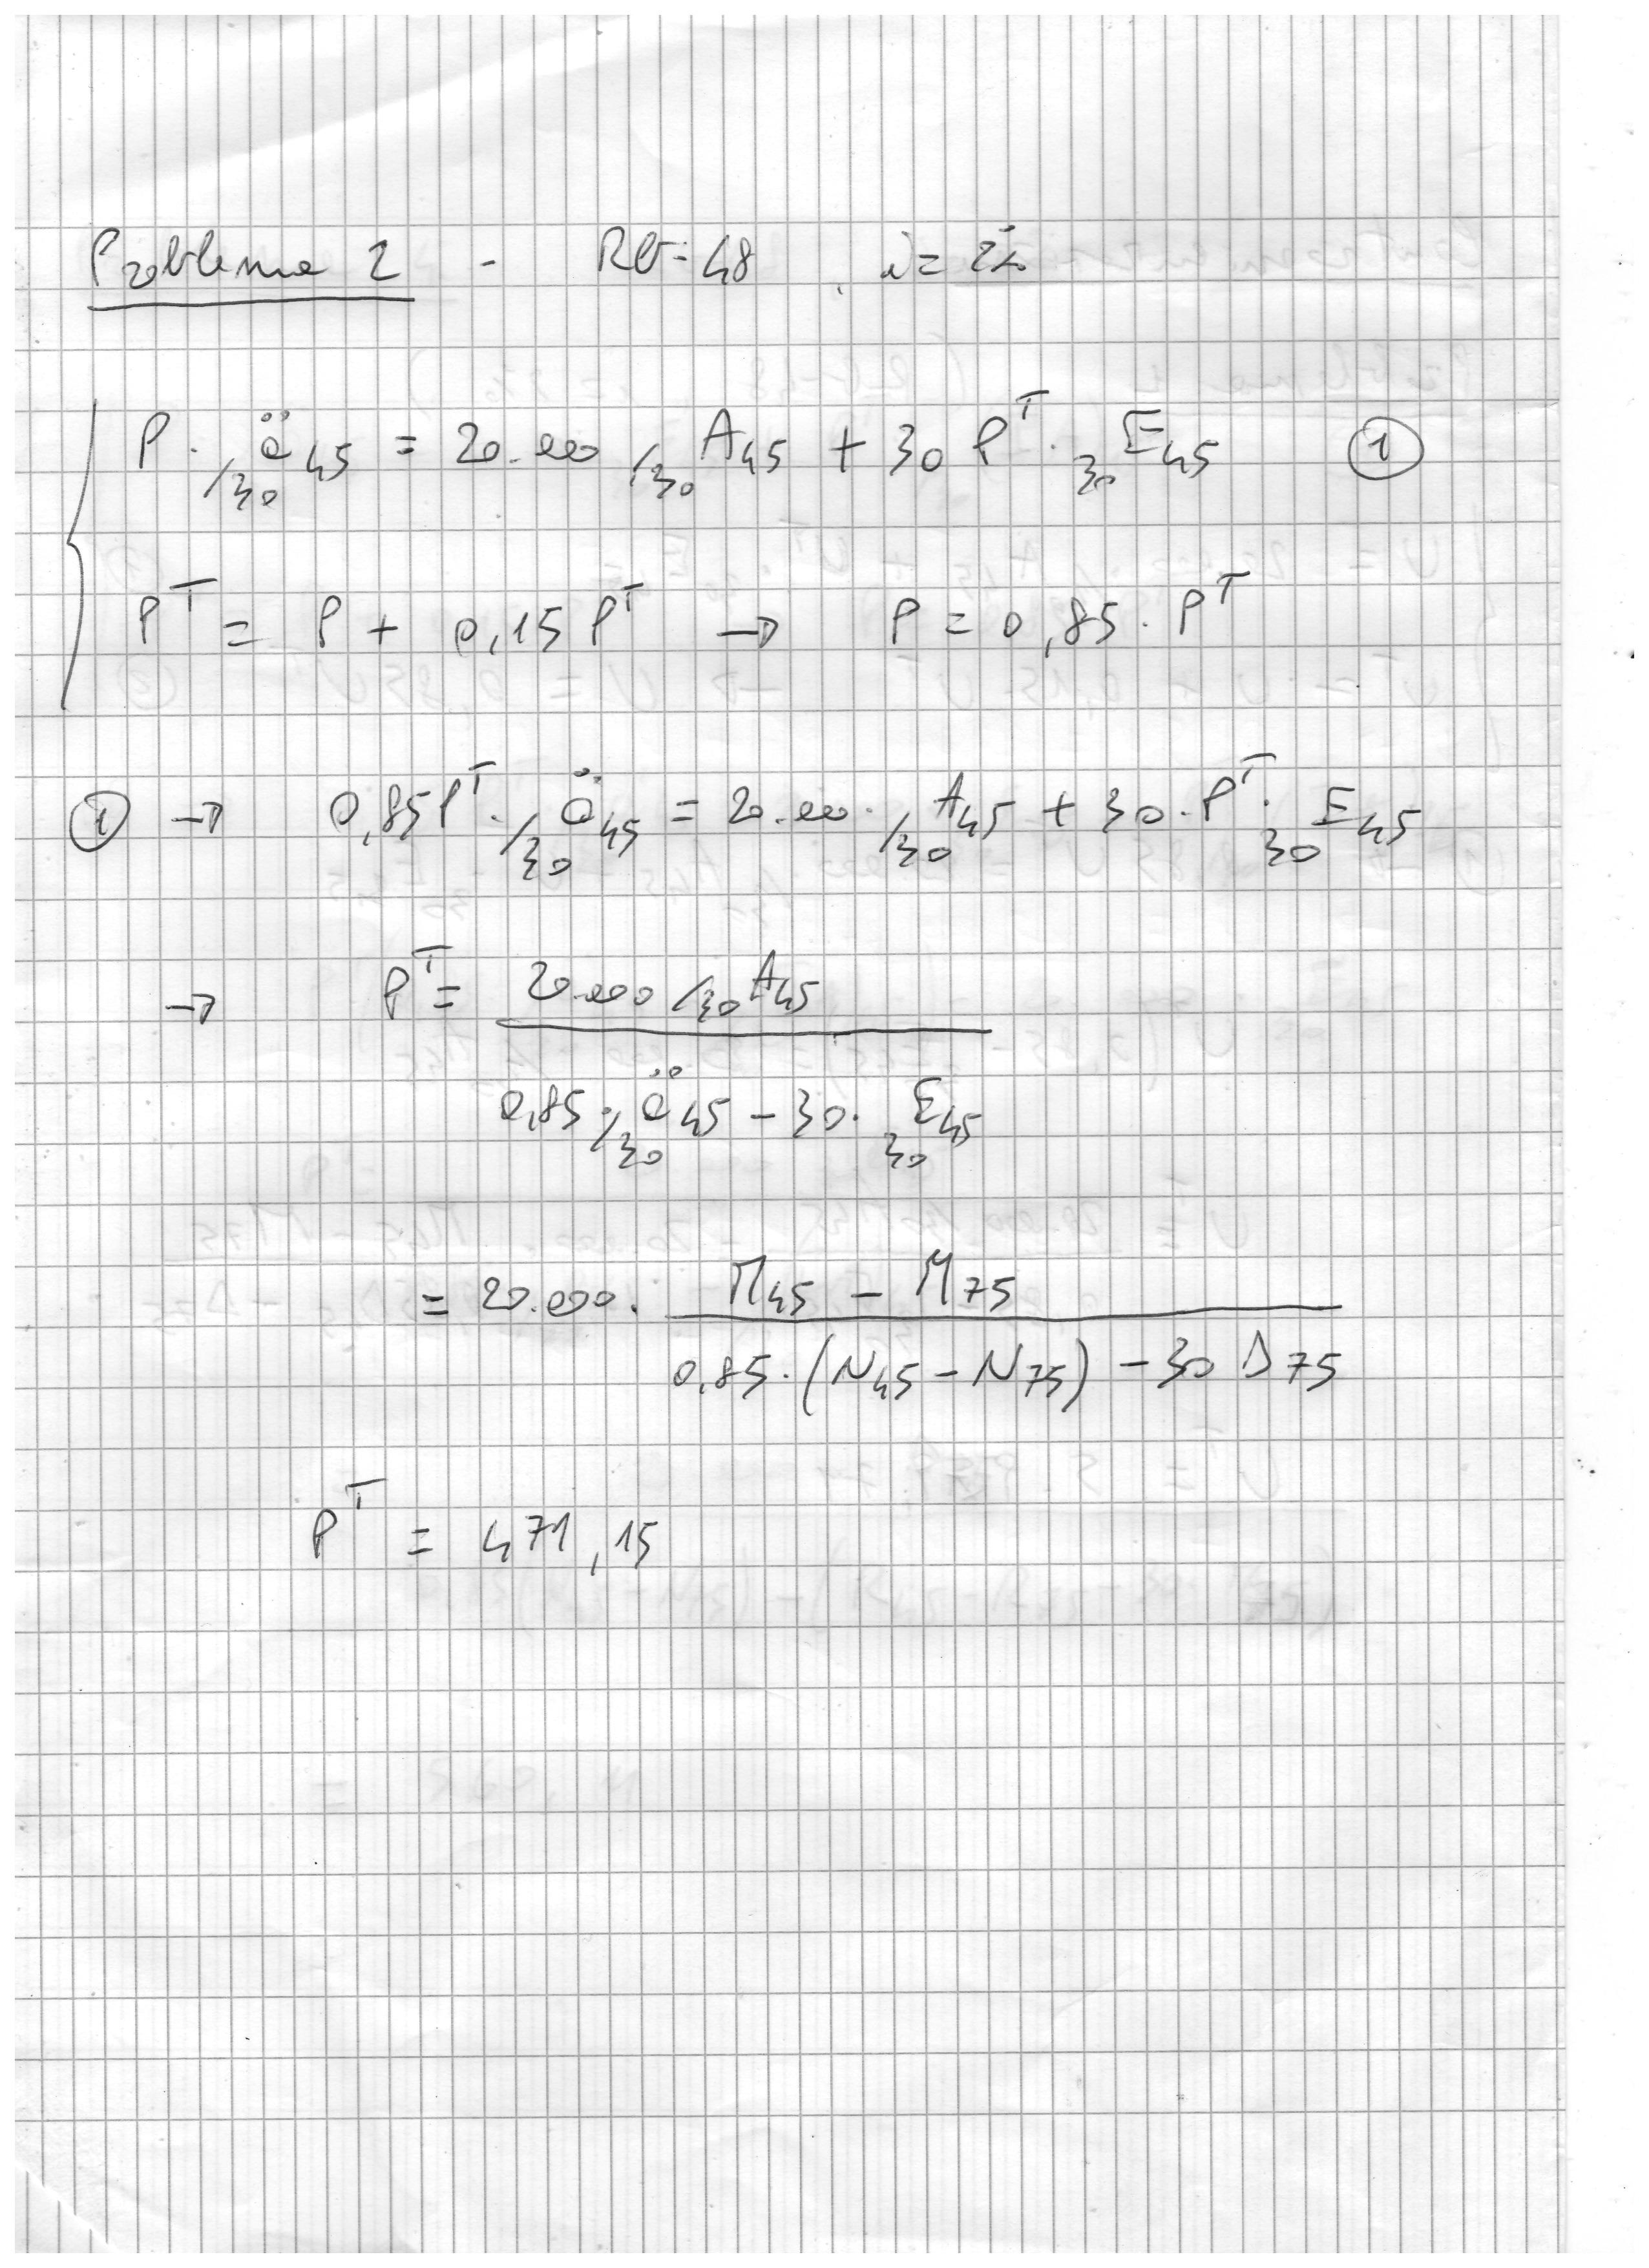 Problema 2 - RV-48 , i= 2%
P · /30 ä 45 = 20.000 /30 A45 + 30 P^T · 30 E45 ①
P^T = P + 0,15 P^T → P = 0,85 · P^T
① → 0,85 P^T · /30 ä 45 = 20.000 · /30 A45 + 30 · P^T · 30 E45
→ P^T = 20.000 /30 A45
0,85 · /30 ä 45 - 30 · 30 E45
= 20.000 · M45 - M75
0,85 · (N45 - N75) - 30 D75
P^T = 471,15